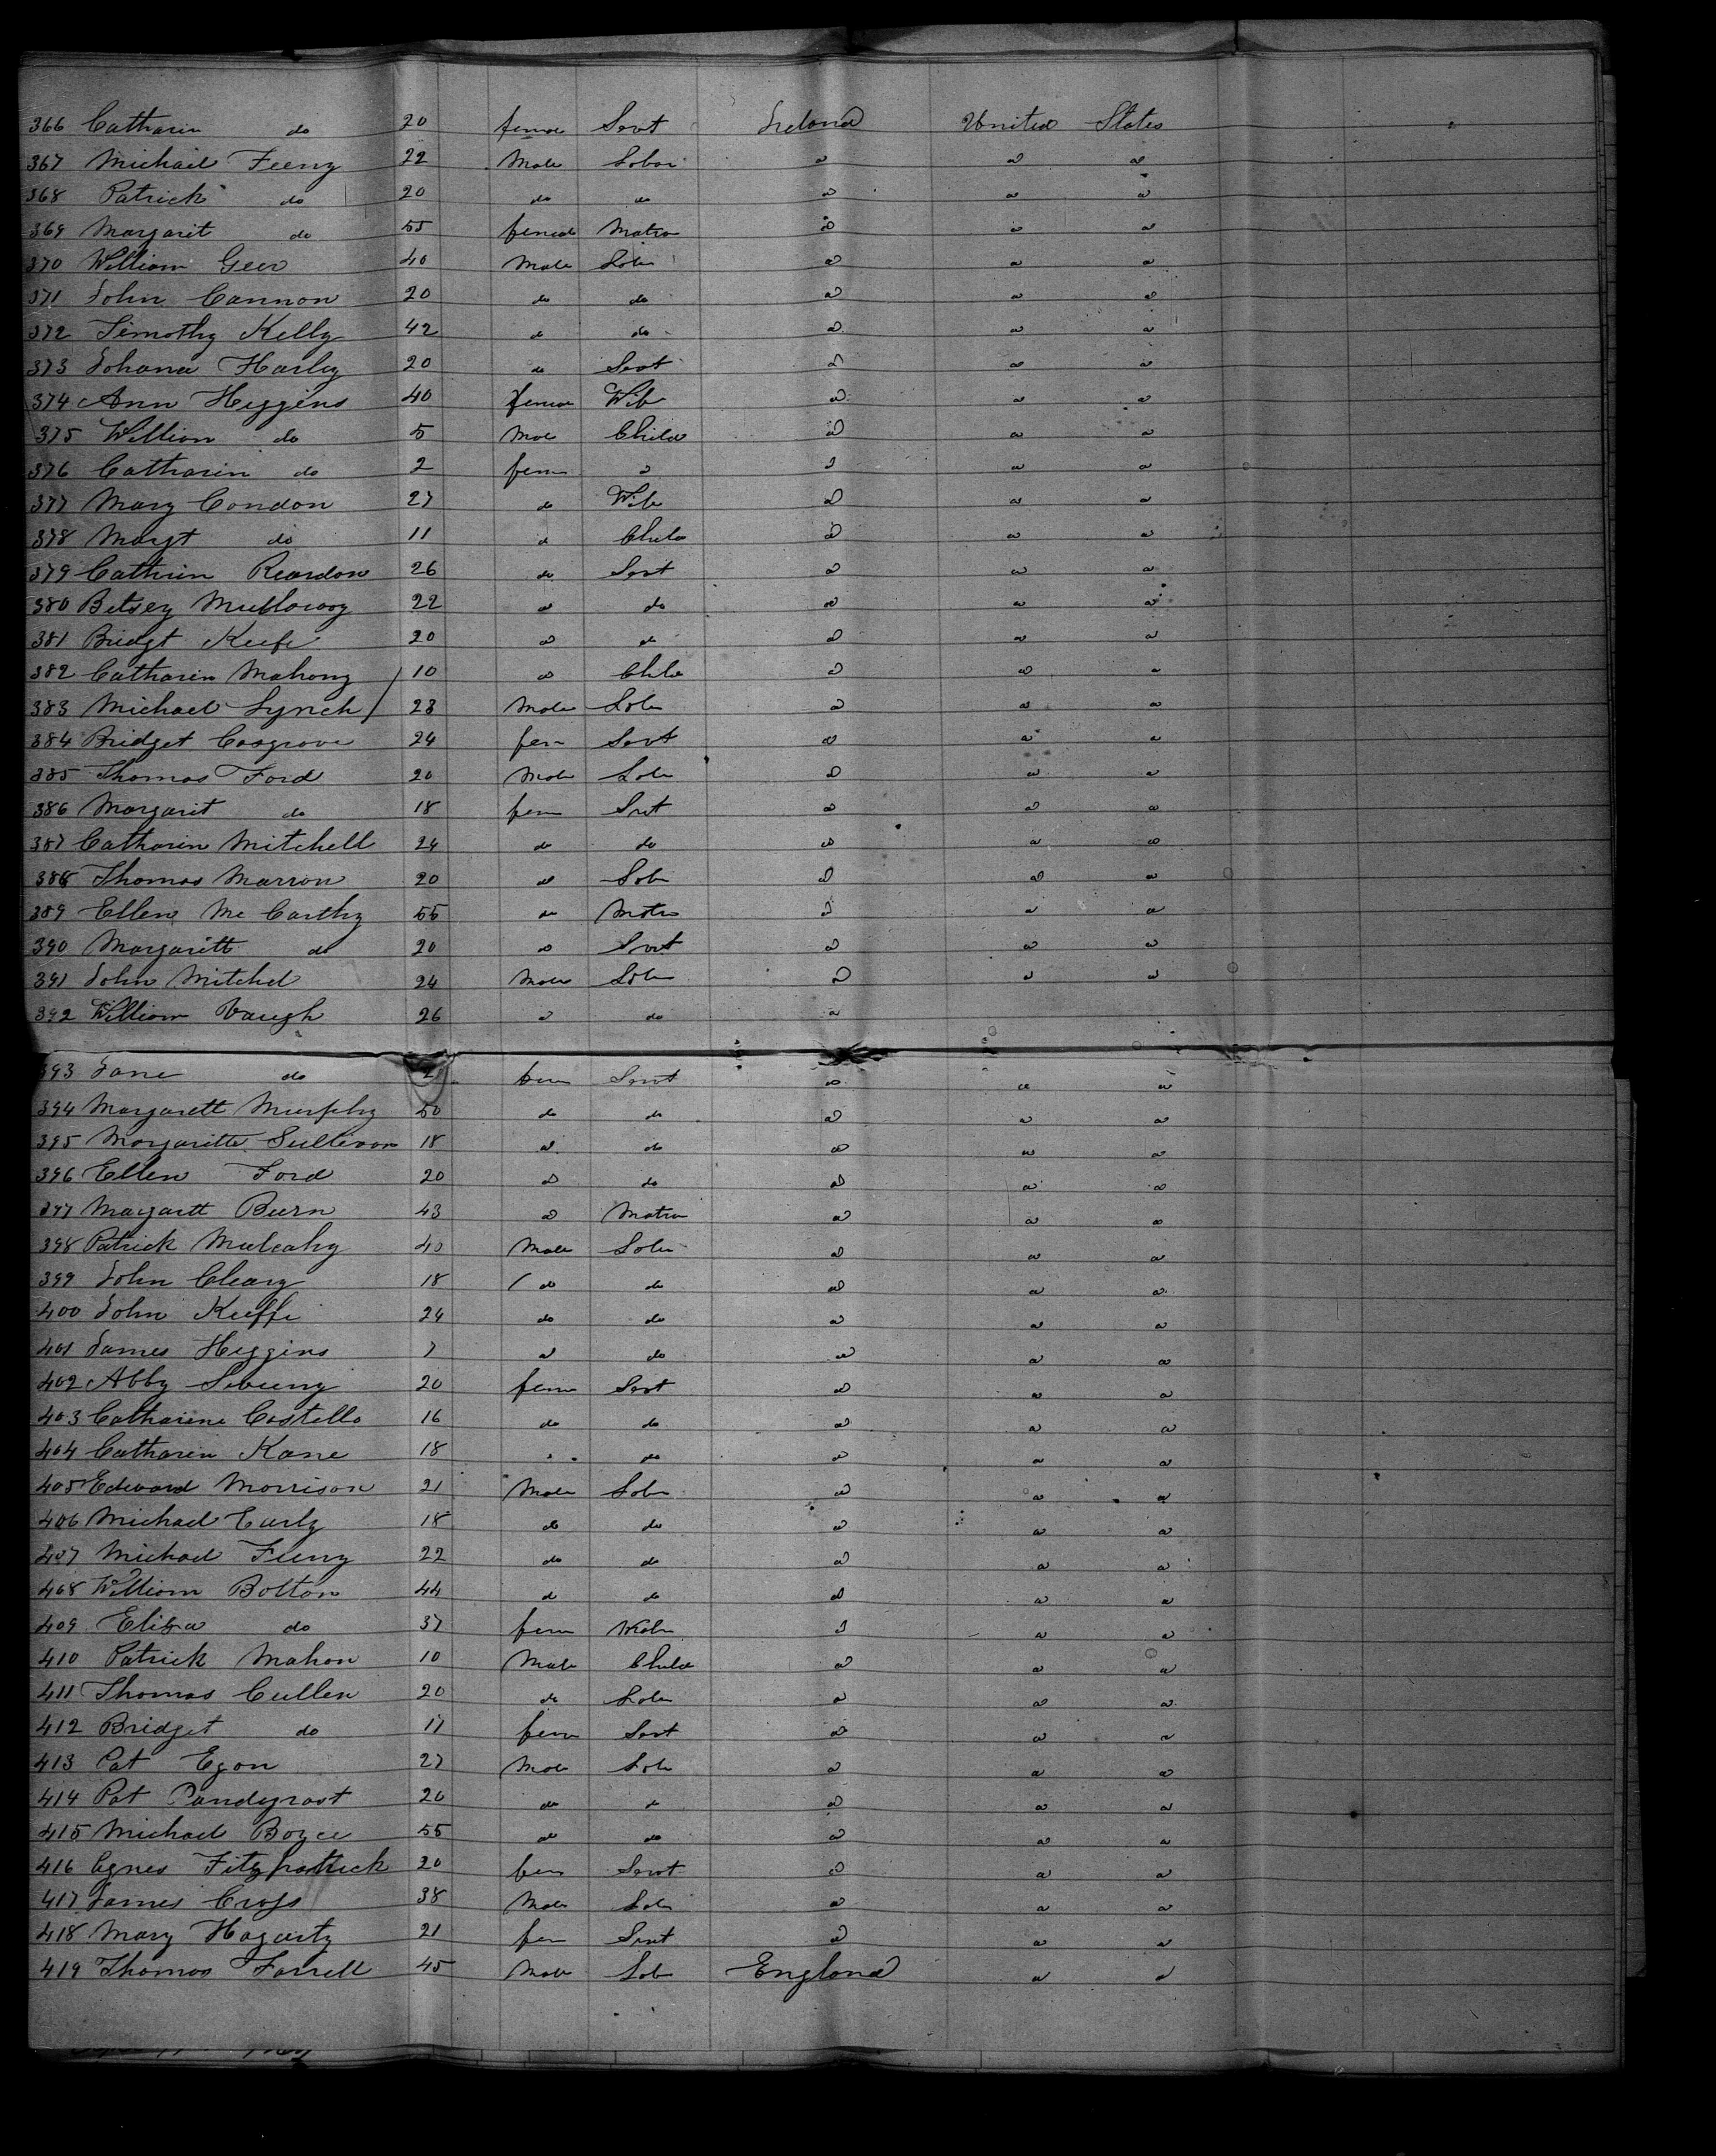 366 Catharin do 20 female Servt Ireland United States
367 Michael Feeny 22 Male Labor do do do
368 Patrick do 20 do do do do do
369 Margarit do 55 female Matron do do do
370 William Geer 40 Male Labr do do do
371 John Cannon 20 do do do do do
372 Timothy Kelly 42 do do do do do
373 Johana Harley 20 do Servt do do do
374 Ann Higgins 40 female Wife do do do
375 William do 5 Male Child do do do
376 Catharin do 2 fem do do do do
377 Mary Condon 27 do Wife do do do
378 Margt do 11 do Child do do do
379 Cathrin Reardon 26 do Servt do do do
380 Betsey 22 do do do do do
381 Bridgt Keefe 20 do do do do do
382 Catharin Mahony 10 do Child do do do
383 Michael Lynch 23 Male Labr do do do
384 Bridget Cosgrove 24 fem Servt do do do
385 Thomas Ford 20 Male Labr do do do
386 Margarit do 18 fem Servt do do do
387 Catharin Mitchell 24 do do do do do
388 Thomas Marron 20 do Labr do do do
389 Ellen Mc Carthy 55 do Matrn do do do
390 Margaritt do 20 do Servt do do do
391 John Mitchel 24 Male Labr do do do
392 William Vaugh 26 do do do
393 Jane do fem Servt do do do
394 Margarett Murphy 50 do do do do do
395 Margaritte Sullivan 18 do do do do do
396 Ellen Ford 20 do do do do do
397 Margartt Burn 43 do Matrn do do do
398 Patrick Mulcahy 40 Male Labr do do do
399 John Cleary 18 do do do do do
400 John Keeffe 24 do do do do do
401 James Higgins 7 do do do do do
402 Abby 20 fem Servt do do do
403 Catharine Costello 16 do do do do do
404 Catharin Kane 18 do do do do do
405 Edward Morrison 21 Male Labr do do do
406 Michael Early 18 do do do do do
407 Michael Feeny 22 do do do do do
408 William Bolton 44 do do do do do
409 Eliza do 37 fem Matrn do do do
410 Patrick Mahon 10 Male Child do do do
411 Thomas Cullen 20 do Labr do do do
412 Bridget do 17 fem Servt do do do
413 Pat Egan 27 Male Labr do do do
414 Pat Pandygrast 20 do do do do do
415 Michael Boyce 55 do do do do do
416 Agnes Fitzpatrick 20 fem Servt do do do
417 James Cross 38 Male Labr do do do
418 Mary Hagarty 21 fem Servt do do do
419 Thomas Farrell 45 Male Labr England do do